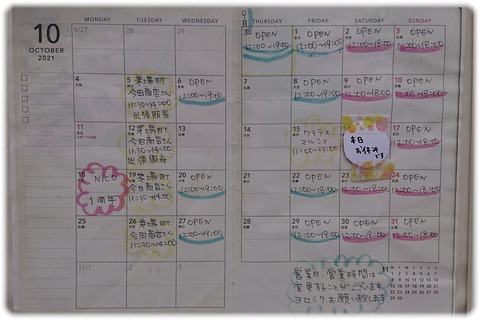 10
OCTOBER
2021
MONDAY TUESDAY WEDNESDAY THURSDAY FRIDAY SATURDAY SUNDAY
9/27 28 29
9月
30 OPEN 12:00~19:00
1 OPEN 12:00~19:00
2 OPEN 12:00~18:00
3 OPEN 12:00~18:00
4
5 茅場町
今田商店さん
11:30~14:00
出張販売
6 OPEN 12:00~19:00
7
8 OPEN 12:00~19:00
9 OPEN 12:00~18:00
10 OPEN 12:00~18:00
11
12 茅場町
今田商店さん
11:30~14:00
出張販売
13
14
15 ワテラス
マルシェ
11:00~19:00
本日
お休み
です
17 OPEN 12:00~18:00
18 NICO
1周年
19 茅場町
今田商店さん
11:30~14:00
20 OPEN 12:00~19:00
21
22 OPEN 12:00~19:00
23 OPEN 12:00~18:00
24 OPEN 12:00~18:00
25
26 茅場町
今田商店さん
11:30~14:00
27 OPEN 12:00~19:00
28
29 OPEN 12:00~19:00
30 OPEN 12:00~18:00
31 OPEN 12:00~18:00
11/1 2 3
営業日、営業時間は
変更することがございます。
ヨロシクお願い致します
11